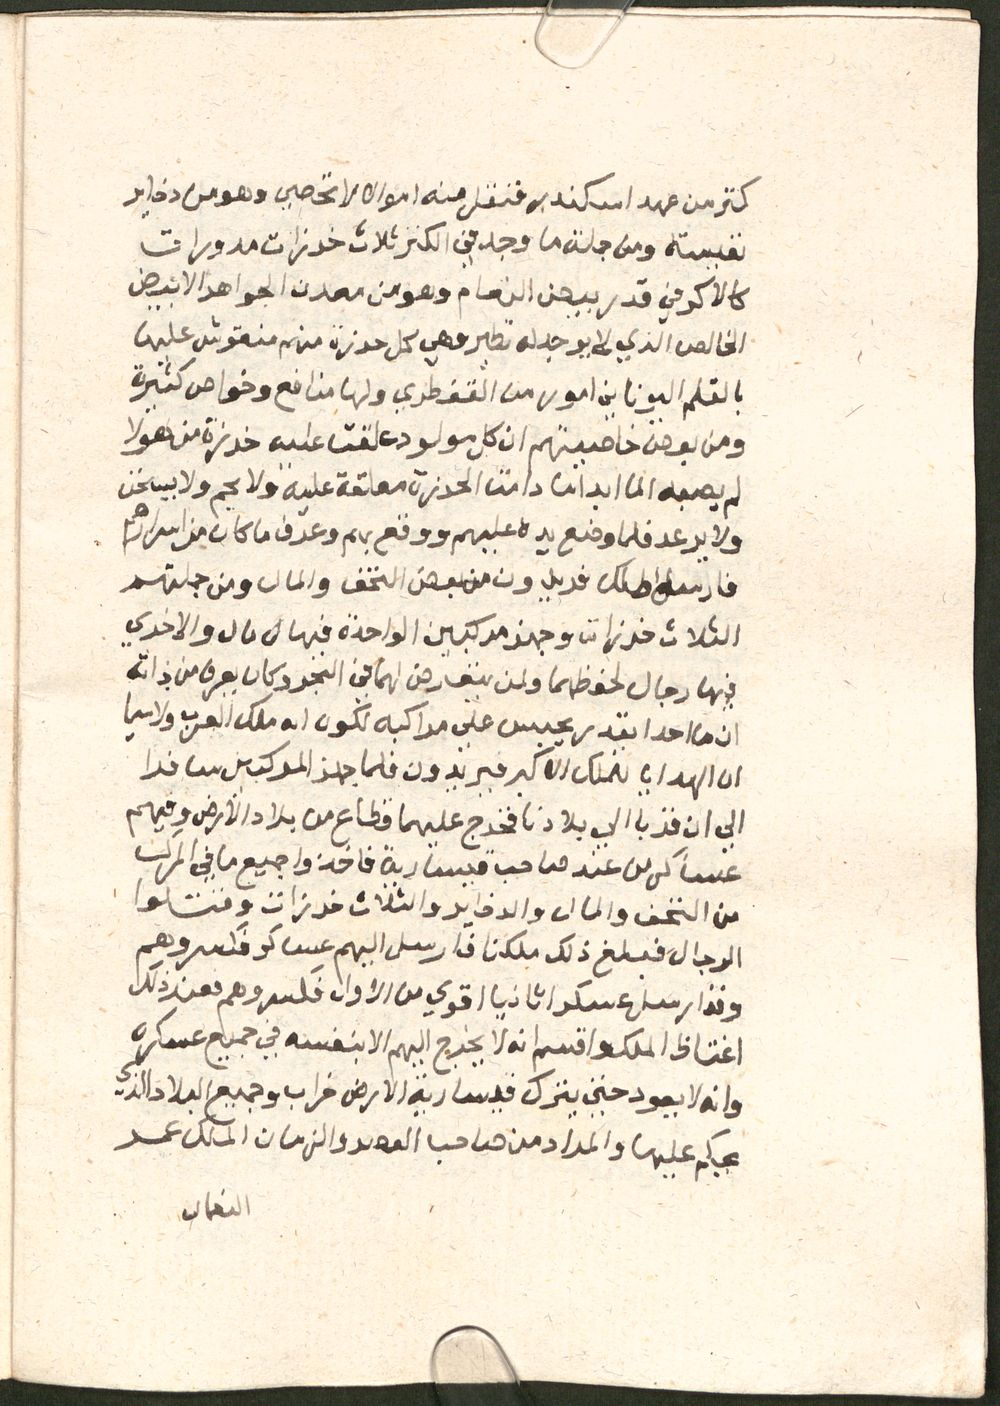 كنز من عهد اسكندر فنقل منه اموالا لا تحصي وهو من دخاير
نفيسة ومن جملة ما وجد في الكنز ثلاث خرزات مدورات
كالاكر في قدر بيض النعام وهو من معدن الجواهر الابيض
الخالص الذي لا يوجد له نظير وهي كل خرزة منهم منقوش عليها
بالقلم اليوناني امور من ولها منافع وخواص كثيرة
ومن بعض خاصيتهم ان كل مولود علقت عليه خرزة من هولا
لم يصبه الم ابدا ما دامت الخرزة معلقة عليه ولا يحم ولا يسخن
ولا يرعد فلما وضع يده عليهم ووقع بهم وعرف ما كان من اسرارهم
فارسل لملك فريدون من بعض التحف والمال ومن جملتهم
الثلاث خرزات وجهز مركبين الواحدة فيها مال والاخري
فيها رجال لحفظهما ولمن يتعارض لهما في البحر وكان يعرف من ذاته
ان ما احدا يقدر يحبس علي مراكبه لكون انه ملك العرب ولاسيما
ان الهدايا للملك الاكبر فريدون فلما جهز المركبين سافرا
الي ان قربا الي بلادنا فخرج عليهما قطاع من بلاد الارض وفيهم
عساكر من عند صاحب قيسارية فاخذوا جميع ما في المراكب
من التحف والمال والدخاير والثلاث خرزات وقتلوا
الرجال فبلغ ذلك ملكنا فارسل اليهم عساكر فكسروهم
وقد ارسل عسكرا ثانيا اقوي من الاول فكسروهم فعند ذلك
اغتاظ الملك واقسم انه لا يخرج اليهم الا بنفسه في جميع عسكره
وانه لا يعود حتي يترك قيسارية الارض خراب وجميع البلاد الذي
يحكم عليها والمراد من صاحب العصر والزمان الملك عمر
النعمان